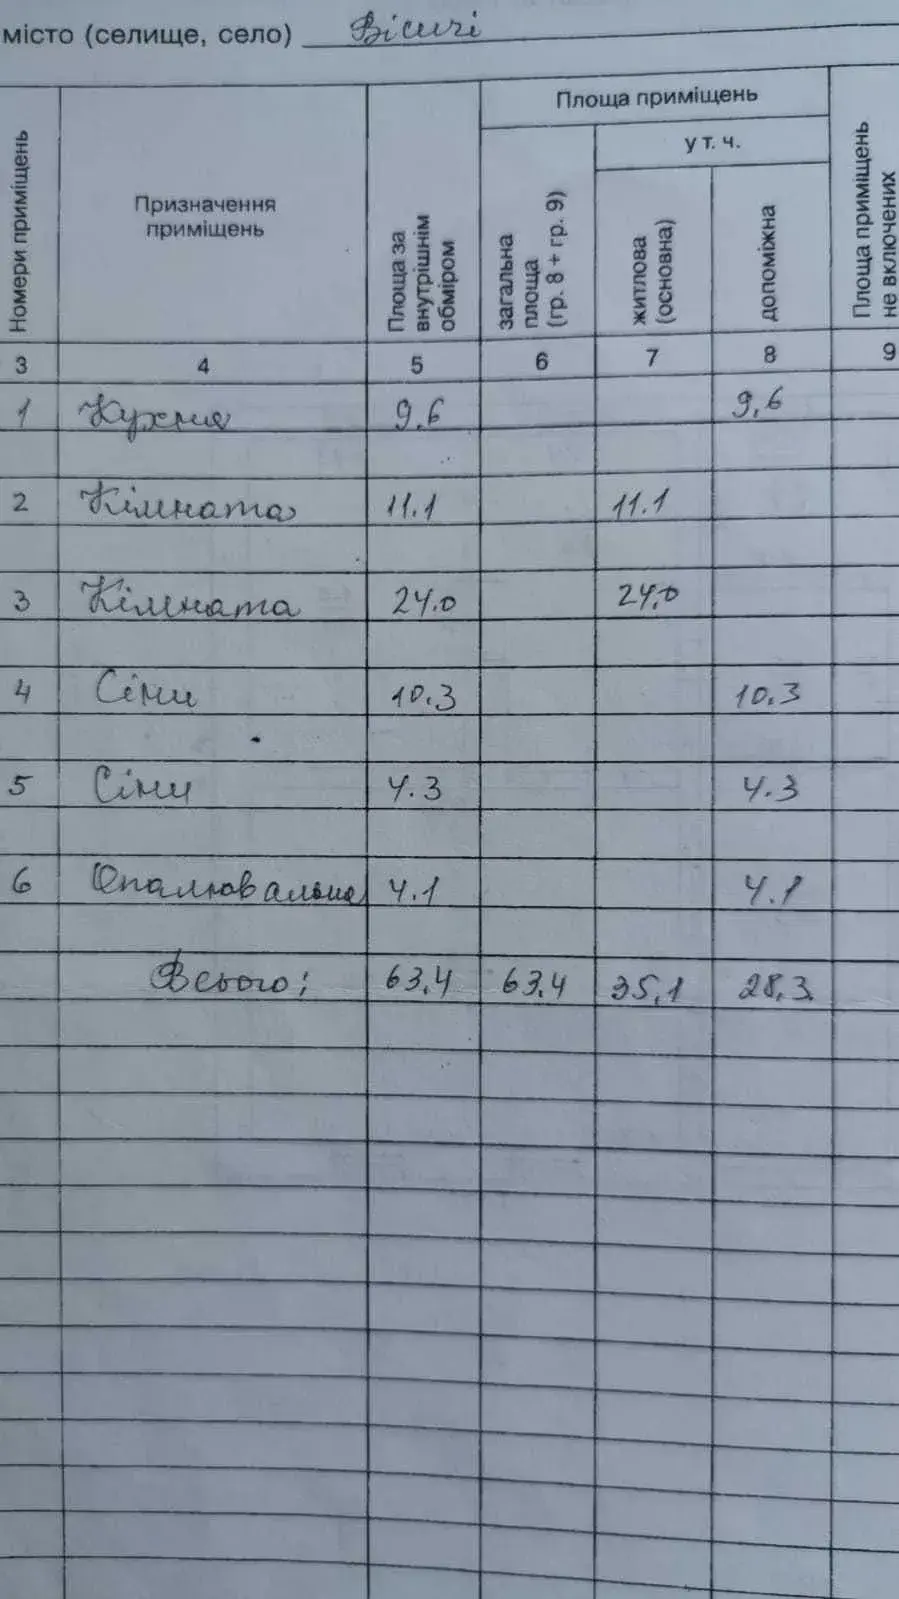 місто (селище, село) Вісичі
Номери приміщень
Призначення
приміщень
Площа за
внутрішнім
обміром
Площа приміщень
загальна
площа
(гр. 8 + гр. 9)
у т. ч.
житлова
(основна)
допоміжна
Площа приміщень
не включених
3 4 5 6 7 8 9
1 Кухня 9,6 9,6
2 Кімната 11.1 11.1
3 Кімната 24.0 24,0
4 Сіни 10,3 10,3
5 Сіни 4.3 4.3
6 Опалювальна 4.1 4.1
Всього: 63,4 63,4 35,1 28,3